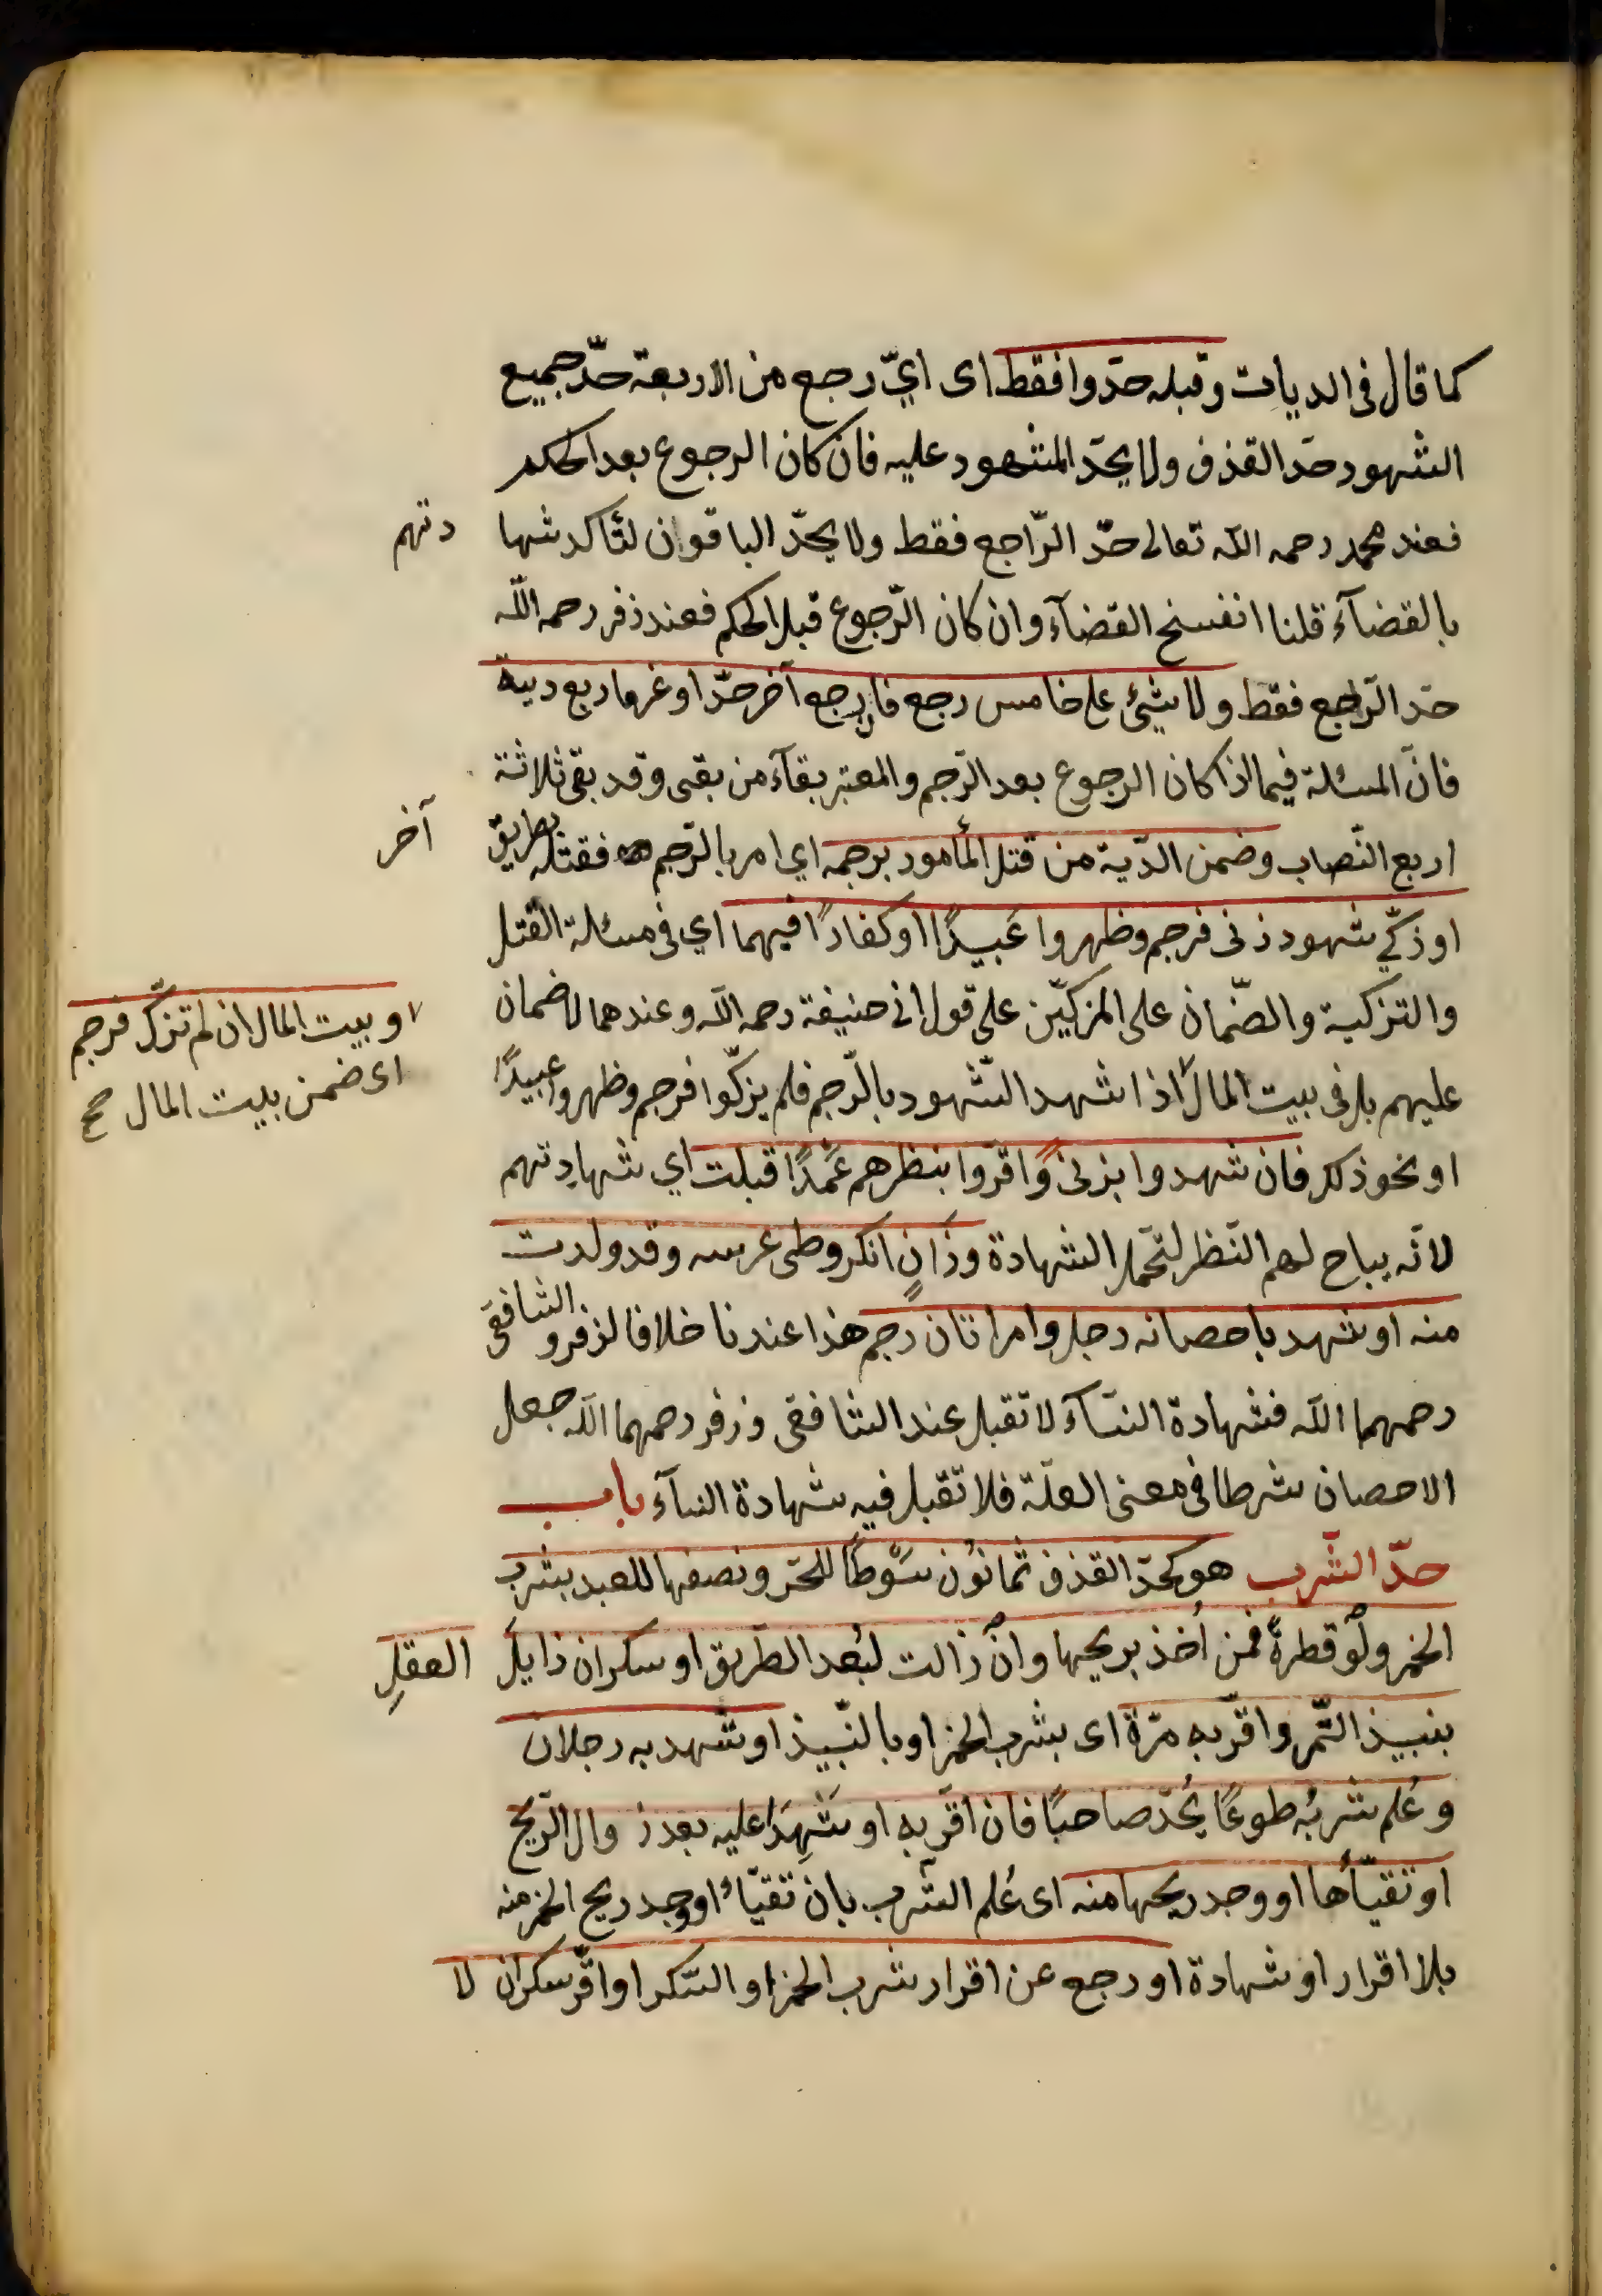 كما قال فى الديات وقبله حدّوا فقط اى ايّ رجع من الاربعة حدّ جميع
الشهود حدّ القذف ولا يحدّ المشهود عليه فان كان الرجوع بعد الحكم
فعند محمد رحمه الله تعالى حدّ الرّاجع فقط ولا يحدّ الباقوان لتأكد شها دتهم
بالقضآء قلنا انفسخ القضآء وان كان الرّجوع قبل الحكم فعند زفر رحمه الله
حدّ الرّاجع فقط ولا شئ على خامس رجع فان رجع آخر حدّا وغرما ربع دية
فانّ المسئلة فيما اذا كان الرجوع بعد الرّجم والمعتبر بقآء من بقى وقد بقى ثلاثة
اربع النّصاب وضمن الدّية من قتل المأمور برجمه اي امر بالرّجم فقتله بطريق آخر
او زكّي شهود زنى فرجم وظهروا عَبيدًا او كفارًا فيهما اي فى مسئلة القتل
والتزكية والضّمان على المزكيّن على قول ابى حنيفة رحمه الله وعندهما لا ضمان
عليهم بل فى بيت المال اذا شهد الشّهود بالرّجم فلم يزكّوا فرجم وظهروا عبيدًا
او نحو ذلك فان شهدوا بزنىً واقرّوا بنظرهم عَمْدًا قبلت اي شهادتهم
لانّه يباح لهم النّظر لتحمّل الشهادة وزانٍ انكر وطى عرسه وقد ولدت
منه او شهد باحصانه رجل وامراتان رجم هذا عندنا خلافا لزفر والشافعى
رحمهما الله فشهادة النسآء لا تقبل عند الشافعى وزفر رحمهما الله جعل
الاحصان شرطا فى معنى العلّة فلا تقبل فيه شهادة النسآء باب
حدّ الشّرب هو كحدّ القذف ثمانوُن سَوْطًا للحرّ ونصفها للعبد بشرب
الخمر ولَوْ قطرةً فمن اُخذ بريحها وانْ زالت لبُعد الطّريق او سكران زايل العقلِ
بنبيذ التّمر واقرّ به مرّة اى بشرب الخمر او بالنّبيذ او شهد به رجلان
وعُلم شربُه طوعًا يُحدّ صاحيًا فان اقرّ به او شَهِدَا عليه بعد زوال الرّيح
او تقيّأها او وجد ريحها منه اى عُلم الشّرب بان تقيّاء او وجد ريح الخمر منه
بلا اقرار او شهادة او رجع عن اقرار شرب الخمر او السّكر او اقرّ سكران لا
او بيت المال ان لم تزكّ فرجم
اى ضمن بيت المال صح